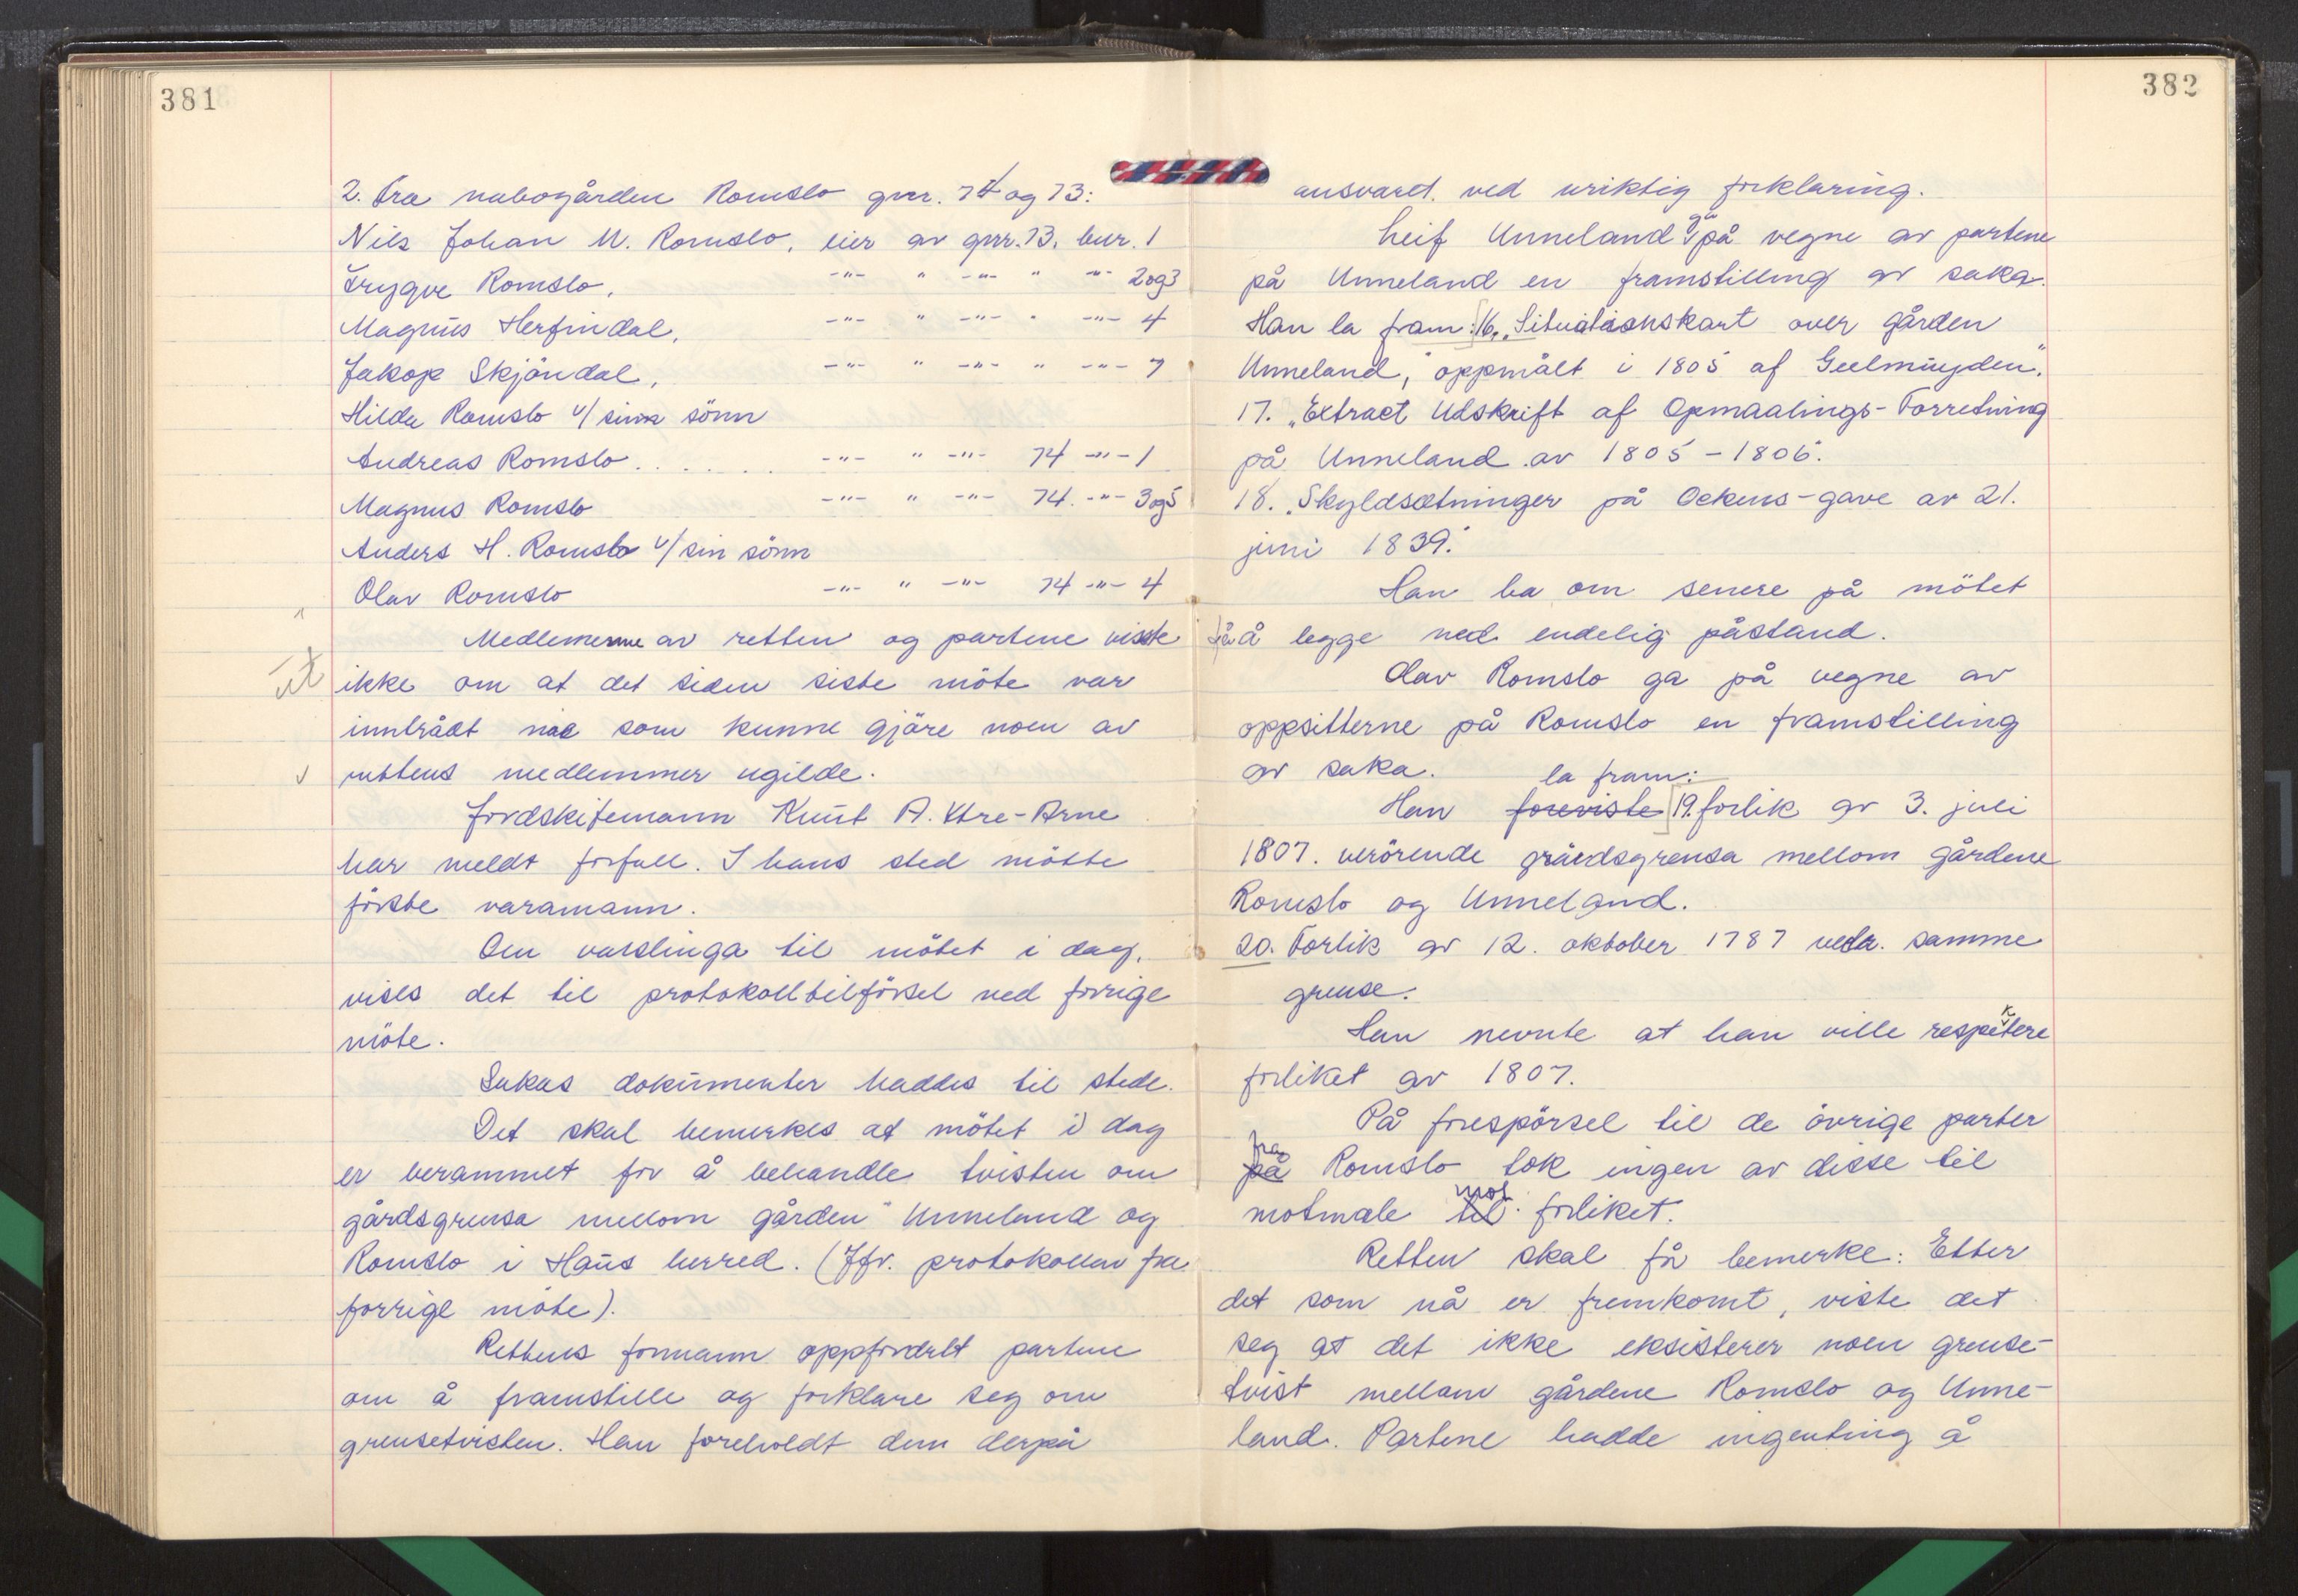 381
2. Fra nabogården Romslo gnr. 74 og 73:
Nils Johan M. Romslo, eier av gnr. 73, bnr. 1
Trygve Romslo, -"- " -"- " -"- 2 og 3
Magnus Herfindal, -"- " -"- " -"- 4
Jakop Skjöndal, -"- " -"- " -"- 7
Hilda Romslo v/ sönn
Andreas Romslo . . . . . . -"- " -"- 74 -"- 1
Magnus Romslo -"- " -"- 74. -"- 3 og 5
Anders H. Romslo v/ sin sönn
Olav Romslo -"- " -"- 74 -"- 4
Medlemerne av retten og partene visste
ut ikke om at det siden siste möte var
inntrådt noe som kunne gjöre noen av
rettens medlemmer ugilde.
Jordskiftemann Knut A. Ytre-Arne
har meldt forfall. I hans sted mötte
förste varamann.
Om varslinga til mötet i dag,
vises det til protokolltilförsel ved forrige
möte.
Sakas dokumenter haddes til stede.
Det skal bemerkes at mötet i dag
er berammet for å behandle tvisten om
gårdsgrensa mellom gården Unneland og
Romslo i Haus herred. (Jfr. protokollen fra
forrige möte).
Rettens formann oppfordret partene
om å framstille og forklare seg om
grensetvisten. Han foreholdt dem derpå
382
ansvaret ved uriktig forklaring.
Leif Unneland ga på vegne av partene
på Unneland en framstilling av saka.
Han la fram: 16. "Situationskart over gården
Unneland," oppmålt i 1805 af Geelmuyden".
17. "Extract Udskrift af Opmaalings-Forretning
på Unneland av 1805 - 1806".
18. "Skyldsætninger på Ockens-gave av 21.
juni 1839".
Han ba om senere på mötet
få å legge ned endelig påstand.
Olav Romslo ga på vegne av
oppsitterne på Romslo en framstilling
av saka.
la fram:
Han foreviste 19. forlik av 3. juli
1807. verörende gråedsgrensa mellom gårdene
Romslo og Unneland.
20. Forlik av 12. oktober 1787 vedr. samme
grense.
Han nevnte at han ville respektere
forliket av 1807.
På forespörsel til de övrige parter
fra på Romslo tok ingen av disse til
motmæle mot til forliket.
Retten skal få bemerke: Etter
det som nå er fremkomt, viste det
seg at det ikke eksisterer noen grense-
tvist mellom gårdene Romslo og Unne-
land. Partene hadde ingenting å